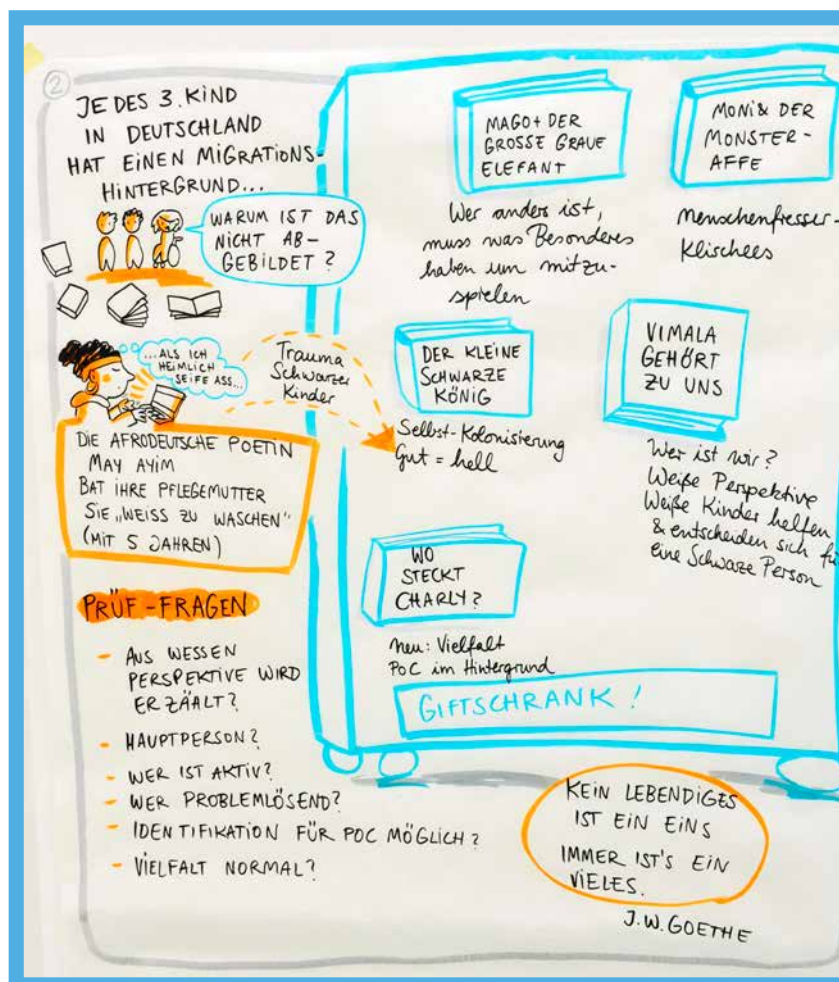 2
JEDES 3. KIND
IN DEUTSCHLAND
HAT EINEN MIGRATIONS-
HINTERGRUND...
WARUM IST DAS
NICHT AB-
GEBILDET?
...ALS ICH
HEIMLICH
SEIFE ASS...
Trauma
Schwarzer
Kinder
DIE AFRODEUTSCHE POETIN
MAY AYIM
BAT IHRE PFLEGEMUTTER
SIE „WEISS ZU WASCHEN"
(MIT 5 JAHREN)
PRÜF-FRAGEN
- AUS WESSEN
PERSPEKTIVE WIRD
ERZÄALT?
- HAUPTPERSON?
- WER IST AKTIV?
- WER PROBLEMLÖSEND?
- IDENTIFIKATION FÜR POC MÖGLICH?
- VIELFALT NORMAL?
MAGO + DER
GROSSE GRAUE
ELEFANT
Wer anders ist,
muss was Besonderes
haben um mitzu-
spielen
MONI & DER
MONSTER-
AFFE
Menschenfresser-
Klischees
DER KLEINE
SCHWARZE
KÖNIG
Selbst-Kolonisierung
Gut = hell
VIMALA
GEHÖRT
ZU UNS
Wer ist wir?
Weiße Perspektive
Weiße Kinder helfen
& entscheiden sich fü
eine Schwarze Person
WO
STECKT
CHARLY?
neu: Vielfalt
PoC im Hintergrund
GIFTSCHRANK!
KEIN LEBENDIGES
IST EIN EINS
IMMER IST'S EIN
VIELES.
J.W. GOETHE